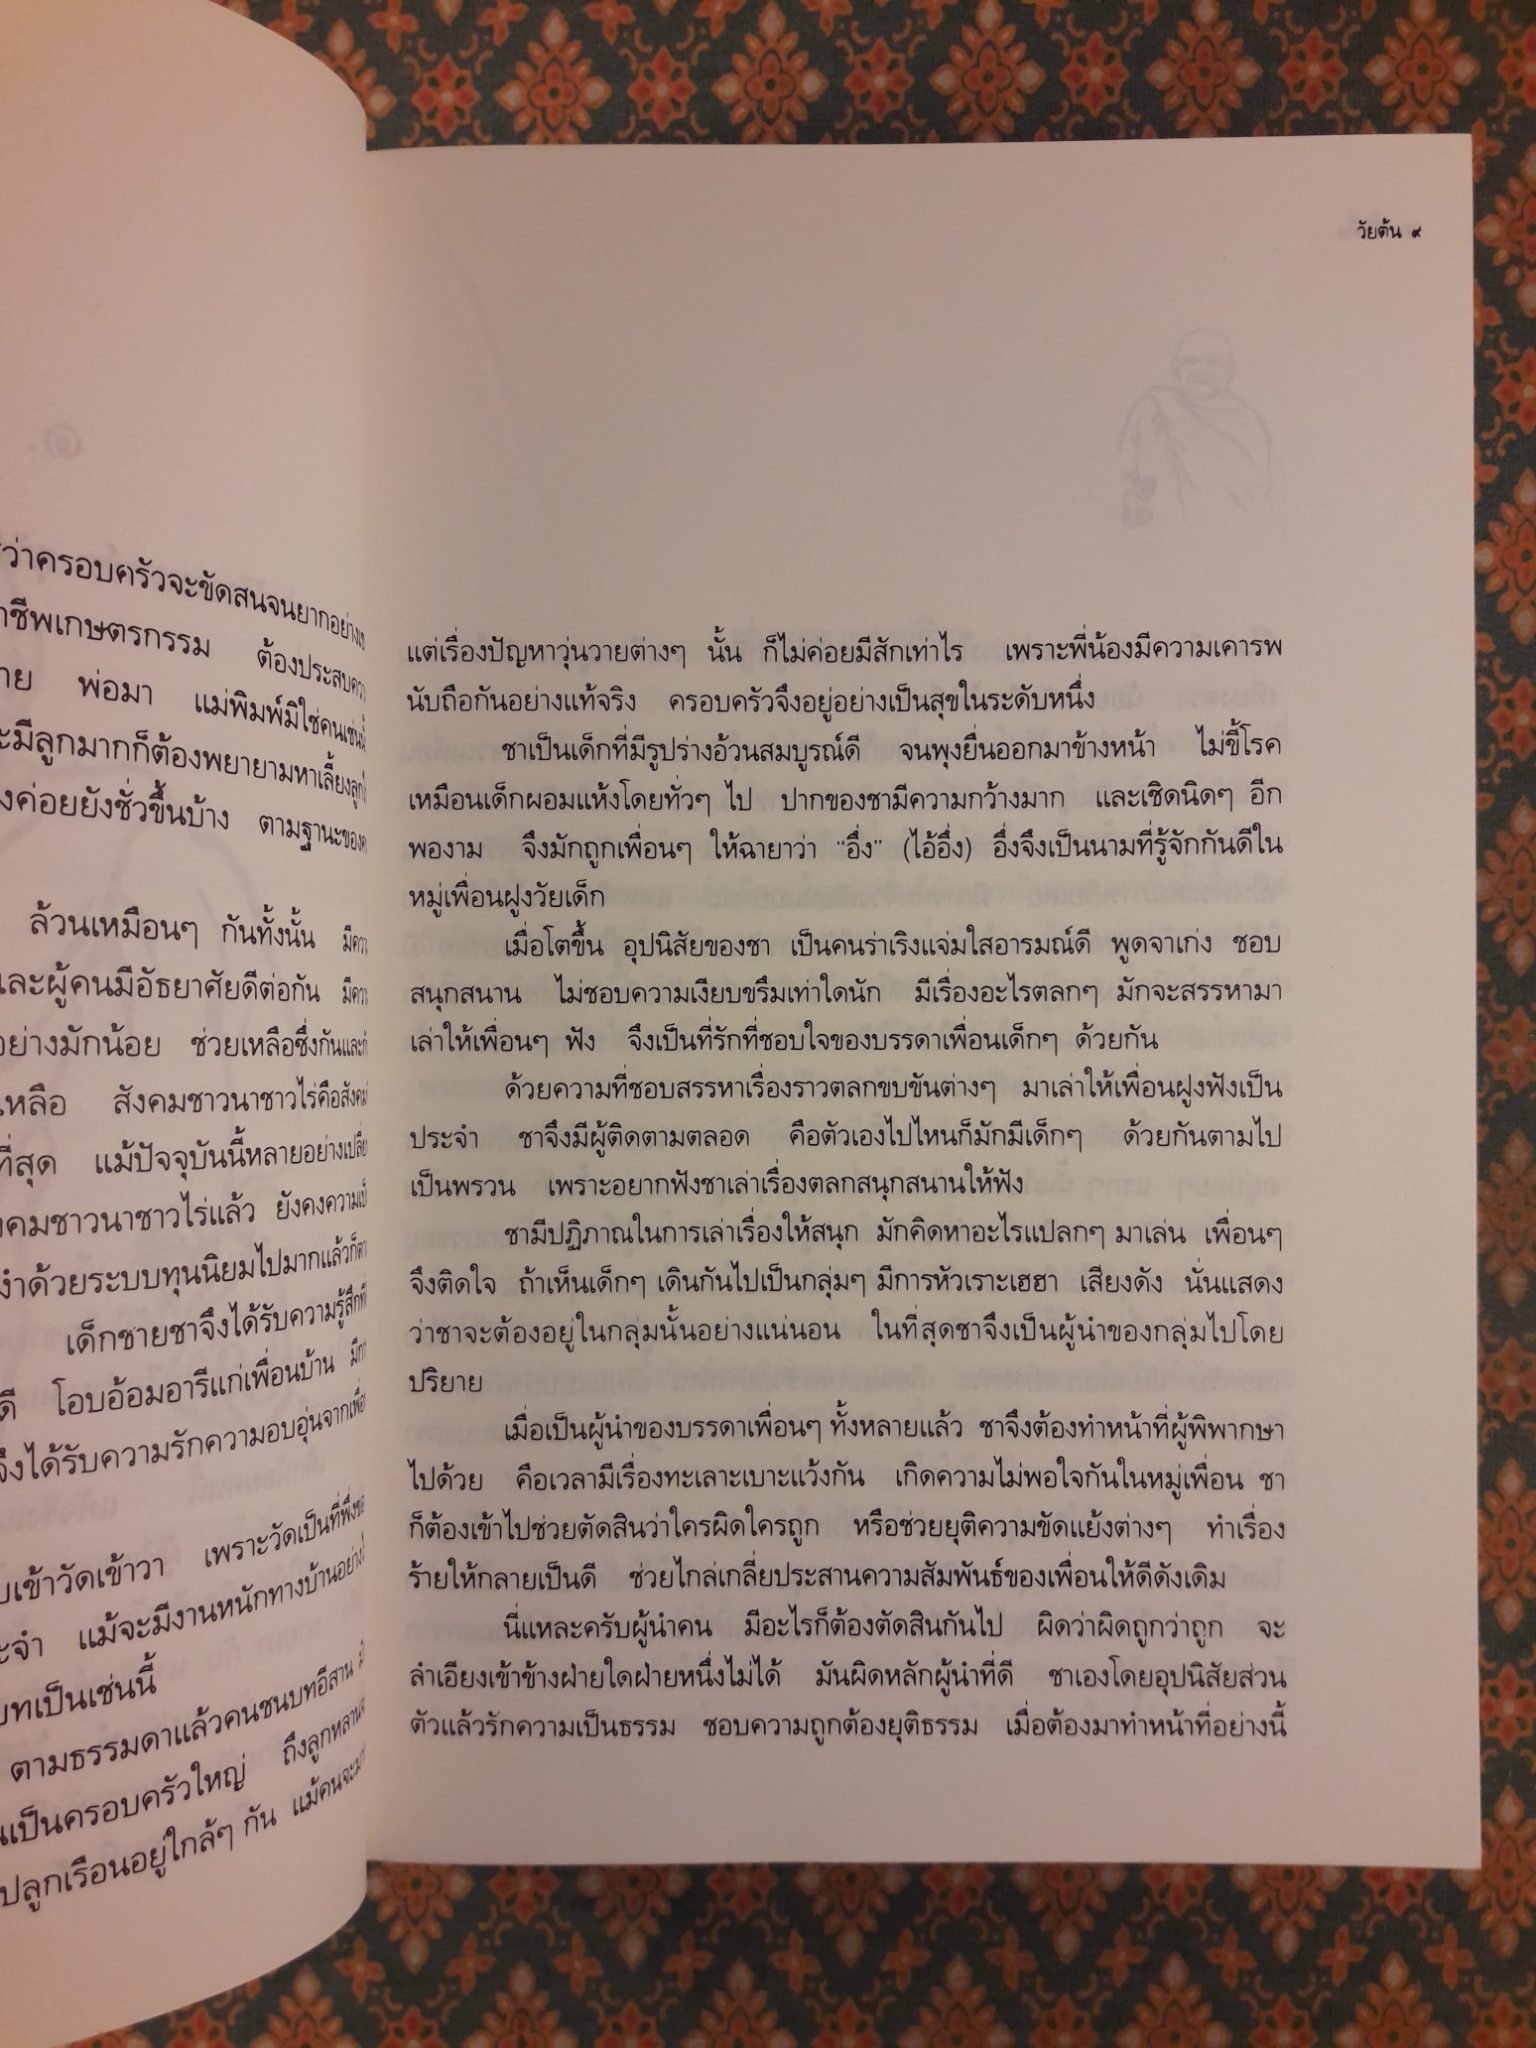 ว่าครอบครัวจะขัดสนจนยากอย่าง
ชีพเกษตรกรรม ต้องประสบ
พ่อมา แม่พิมพ์มิใช่คนเช่นนี้
มีลูกมากก็ต้องพยายามหาเลี้ยงลูก
ค่อยยังชั่วขึ้นบ้าง ตามฐานะของ
ล้วนเหมือนๆ กันทั้งนั้น
และผู้คนมีอัธยาศัยดีต่อกัน
อย่างมักน้อย ช่วยเหลือซึ่งกันและ
เหลือ สังคมชาวนาชาวไร่คือสังคม
ที่สุด แม้ปัจจุบันนี้หลายอย่าง
คมชาวนาชาวไร่แล้ว ยังคงความ
งำด้วยระบบทุนนิยมไปมากแล้วก็
เด็กชายชาจึงได้รับความรู้สึก
ดี โอบอ้อมอารีแก่เพื่อนบ้าน
จึงได้รับความรักความอบอุ่นจาก
เข้าวัดเข้าวา เพราะวัดเป็นที่พึ่ง
แม้จะมีงานหนักทางบ้านอย่าง
เป็นเช่นนี้
ตามธรรมดาแล้วคนชนบทอีสาน
เป็นครอบครัวใหญ่ ถึงลูกหลาน
ปลูกเรือนอยู่ใกล้ๆ กัน แม้คนจะ
วัยต้น ๙
แต่เรื่องปัญหาวุ่นวายต่างๆ นั้น ก็ไม่ค่อยมีสักเท่าไร เพราะพี่น้องมีความเคารพ
นับถือกันอย่างแท้จริง ครอบครัวจึงอยู่อย่างเป็นสุขในระดับหนึ่ง
ชาเป็นเด็กที่มีรูปร่างอ้วนสมบูรณ์ดี จนพุงยื่นออกมาข้างหน้า ไม่ขี้โรค
เหมือนเด็กผอมแห้งโดยทั่วๆ ไป ปากของชามีความกว้างมาก และเชิดนิดๆ อีก
พองาม จึงมักถูกเพื่อนๆ ให้ฉายาว่า "อึ่ง" (ไอ้อึ่ง) อึ่งจึงเป็นนามที่รู้จักกันดีใน
หมู่เพื่อนฝูงวัยเด็ก
เมื่อโตขึ้น อุปนิสัยของชา เป็นคนร่าเริงแจ่มใสอารมณ์ดี พูดจาเก่ง ชอบ
สนุกสนาน ไม่ชอบความเงียบขรึมเท่าใดนัก มีเรื่องอะไรตลกๆ มักจะสรรหามา
เล่าให้เพื่อนๆ ฟัง จึงเป็นที่รักที่ชอบใจของบรรดาเพื่อนเด็กๆ ด้วยกัน
ด้วยความที่ชอบสรรหาเรื่องราวตลกขบขันต่างๆ มาเล่าให้เพื่อนฝูงฟังเป็น
ประจำ ชาจึงมีผู้ติดตามตลอด คือตัวเองไปไหนก็มักมีเด็กๆ ด้วยกันตามไป
เป็นพรวน เพราะอยากฟังชาเล่าเรื่องตลกสนุกสนานให้ฟัง
ชามีปฏิภาณในการเล่าเรื่องให้สนุก มักคิดหาอะไรแปลกๆ มาเล่น เพื่อนๆ
จึงติดใจ ถ้าเห็นเด็กๆ เดินกันไปเป็นกลุ่มๆ มีการหัวเราะเฮฮา เสียงดัง นั่นแสดง
ว่าชาจะต้องอยู่ในกลุ่มนั้นอย่างแน่นอน ในที่สุดชาจึงเป็นผู้นำของกลุ่มไปโดย
ปริยาย
เมื่อเป็นผู้นำของบรรดาเพื่อนๆ ทั้งหลายแล้ว ชาจึงต้องทำหน้าที่ผู้พิพากษา
ไปด้วย คือเวลามีเรื่องทะเลาะเบาะแว้งกัน เกิดความไม่พอใจกันในหมู่เพื่อน ชา
ก็ต้องเข้าไปช่วยตัดสินว่าใครผิดใครถูก หรือช่วยยุติความขัดแย้งต่างๆ ทำเรื่อง
ร้ายให้กลายเป็นดี ช่วยไกล่เกลี่ยประสานความสัมพันธ์ของเพื่อนให้ดีดังเดิม
นี่แหละครับผู้นำคน มีอะไรก็ต้องตัดสินกันไป ผิดว่าผิดถูกว่าถูก จะ
ลำเอียงเข้าข้างฝ่ายใดฝ่ายหนึ่งไม่ได้ มันผิดหลักผู้นำที่ดี ชาเองโดยอุปนิสัยส่วน
ตัวแล้วรักความเป็นธรรม ชอบความถูกต้องยุติธรรม เมื่อต้องมาทำหน้าที่อย่างนี้